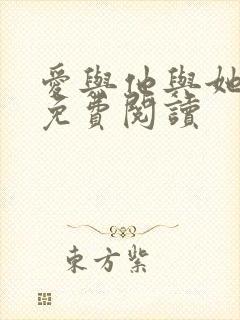 愛與他與她
免費閱讀
東方紫